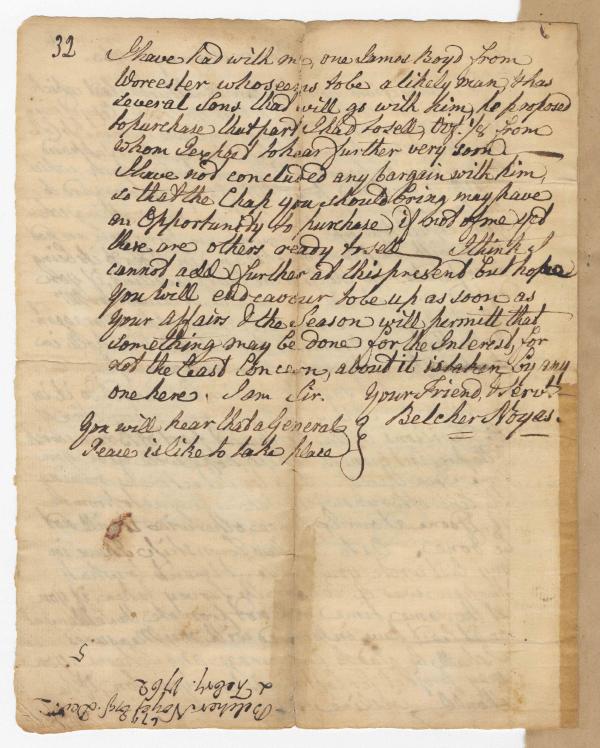 32
I have had with me, one James Boyd from
Worcester who seems to be a likely man, & has
several Sons that will go with him, he proposed
to purchase that part I had to sell, Vizt. 1/8 from
whom I expect to hear further very soon
I have not concluded any bargain with him,
so that the Chap you should bring may have
an Opportunity to purchase, if not of me yet
there are others ready to sell I think I
cannot add further at this present but hope
you will endeavour to be up as soon as
your affairs & the Season will permitt that
something may be done for the Interest, for
not the least Concern, about it is taken by any
one here. I am Sir. Your Friend, & Servt.
Belcher Noyes.
You will hear that a General
Peace is like to take place
5.
Belcher Noyes Esqr.
2 Febry. 1762